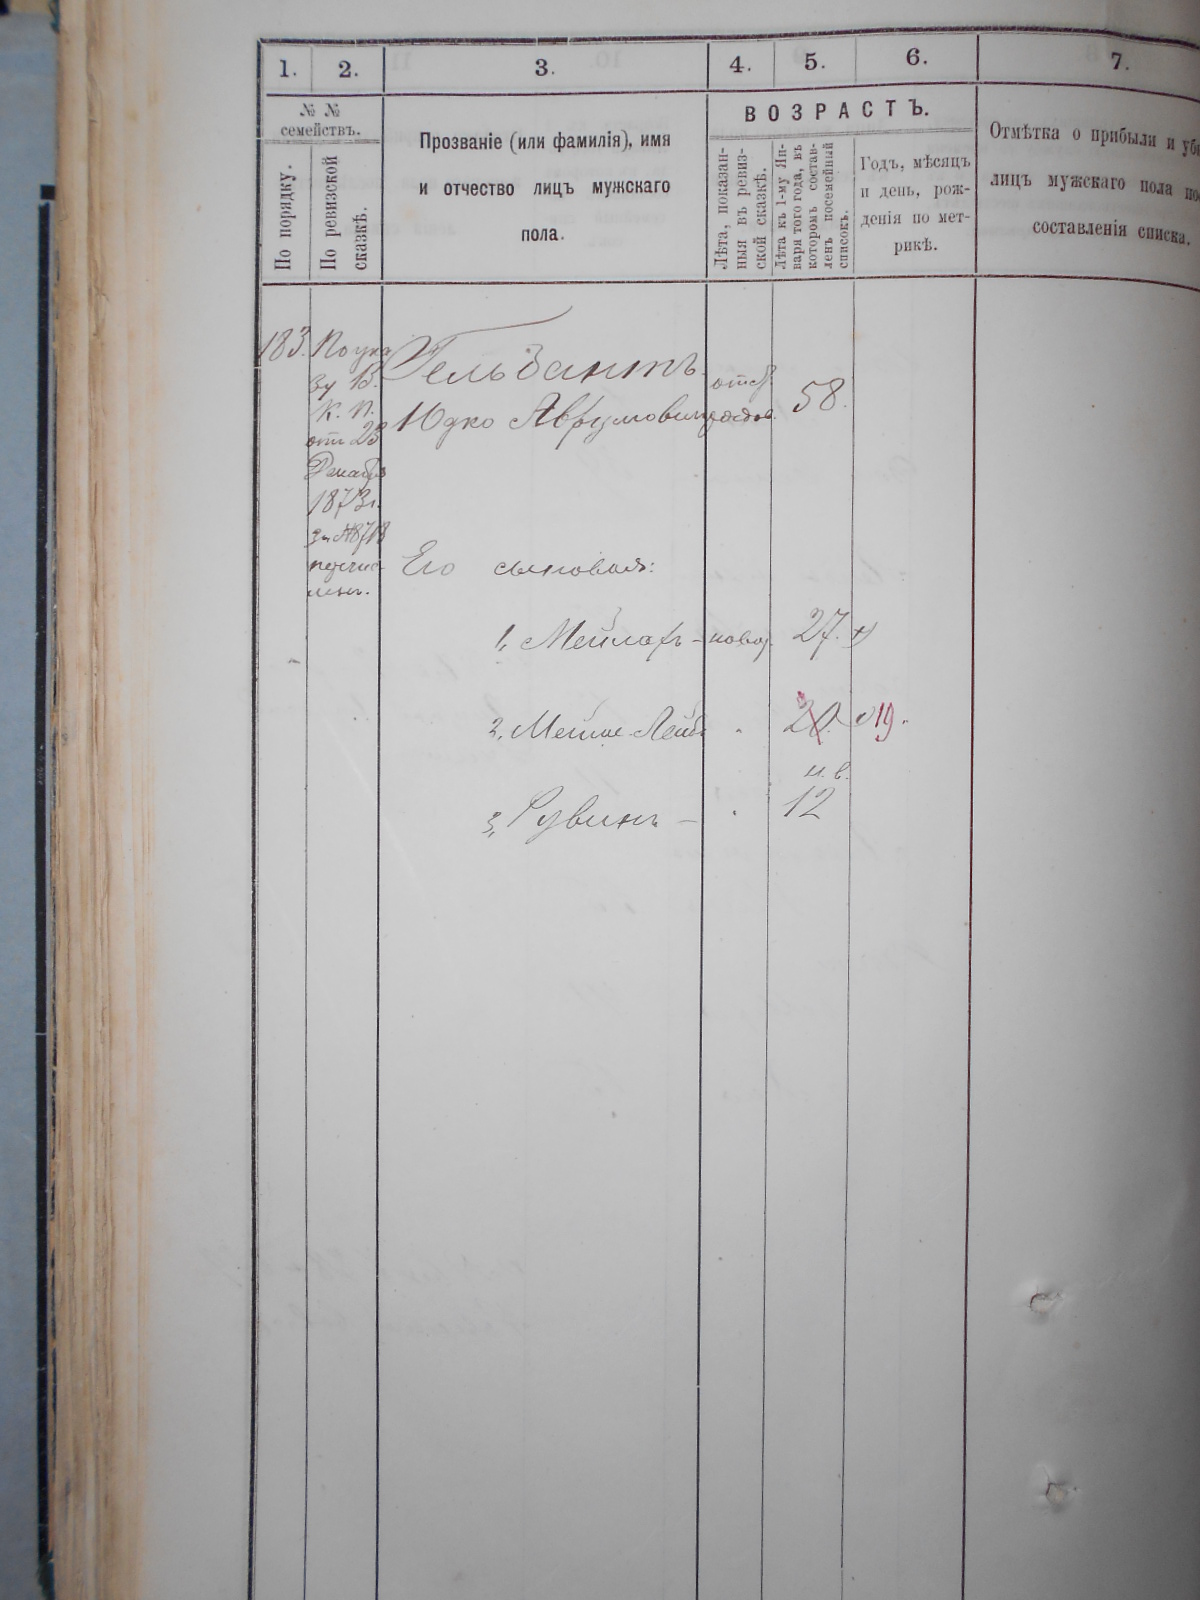 1. 2. 3. 4. 5. 6. 7.
№ №
семействъ.
По порядку.
По ревизской
сказкѣ.
Прозваніе (или фамилія), имя
и отчество лицъ мужскаго
пола.
ВОЗРАСТЪ.
Лѣта, показан-
ныя въ ревиз-
ской сказкѣ.
Лѣта къ 1-му Ян-
варя того года, въ
которомъ состав-
ленъ посемейный
списокъ.
Годъ, мѣсяцъ
и день, рож-
денія по мет-
рикѣ.
Отмѣтка о прибыли и уб
лицъ мужскаго пола по
составленія списка.
183.
По ука
зу В.
К. П.
отъ 23
Декабр
1873 г.
за №8718
причис
ленъ.
Гельбантъ
Юдко Аврумовичъ
58.
Его сыновья:
1, Мейлахъ - новор. 27.
2, Мейше-Лейб 20. 19.
3, Рувинъ - 12